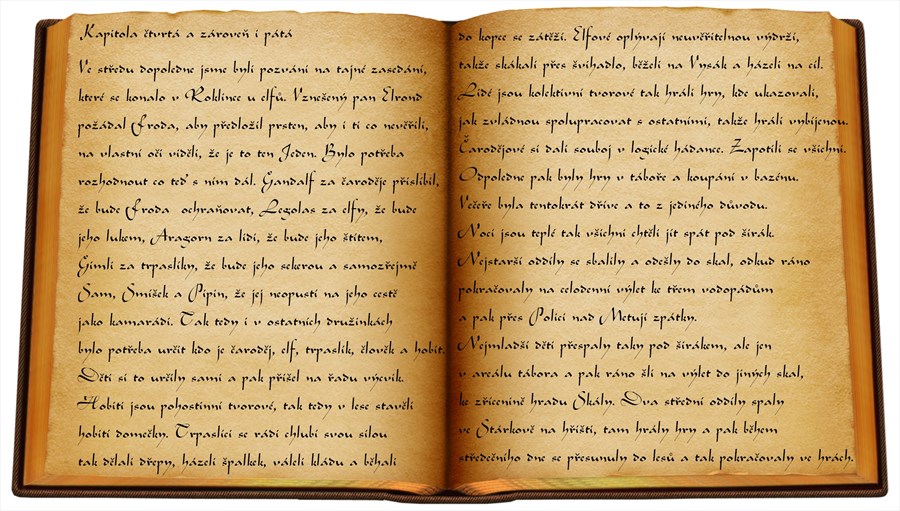 Kapitola čtvrtá a zároveň i pátá
Ve středu dopoledne jsme byli pozváni na tajné zasedání,
které se konalo v Roklince u elfů. Vznešený pan Elrond
požádal Froda, aby předložil prsten, aby i ti co nevěřili,
na vlastní oči viděli, že je to ten Jeden. Bylo potřeba
rozhodnout co teď s ním dál. Gandalf za čaroděje přislíbil,
že bude Froda ochraňovat, Legolas za elfy, že bude
jeho lukem, Aragorn za lidi, že bude jeho štítem,
Gimli za trpaslíky, že bude jeho sekerou a samozřejmě
Sam, Smíšek a Pipin, že jej neopustí na jeho cestě
jako kamarádi. Tak tedy i v ostatních družinkách
bylo potřeba určit kdo je čaroděj, elf, trpaslík, člověk a hobit.
Děti si to určily sami a pak přišel na řadu výcvik.
Hobiti jsou pohostinní tvorové, tak tedy v lese stavěli
hobití domečky. Trpaslíci se rádi chlubí svou silou
tak dělali dřepy, házeli špalkek, váleli kládu a běhali
do kopce se zátěží. Elfové oplývají neuvěřitelnou výdrží,
takže skákali přes švihadlo, běželi na Vysák a házeli na cíl.
Lidé jsou kolektivní tvorové tak hráli hry, kde ukazovali,
jak zvládnou spolupracovat s ostatními, takže hráli vybíjenou.
Čarodějové si dali souboj v logické hádance. Zapotili se všichni.
Odpoledne pak byly hry v táboře a koupání v bazénu.
Večeře byla tentokrát dříve a to z jediného důvodu.
Noci jsou teplé tak všichni chtěli jít spát pod širák.
Nejstarší oddíly se sbalily a odešly do skal, odkud ráno
pokračovaly na celodenní výlet ke třem vodopádům
a pak přes Polici nad Metují zpátky.
Nejmladší děti přespaly taky pod širákem, ale jen
v areálu tábora a pak ráno šli na výlet do jiných skal,
ke zřícenině hradu Skály. Dva střední oddíly spaly
ve Stárkově na hřišti, tam hrály hry a pak během
středečního dne se přesunuly do lesů a tak pokračovaly ve hrách.